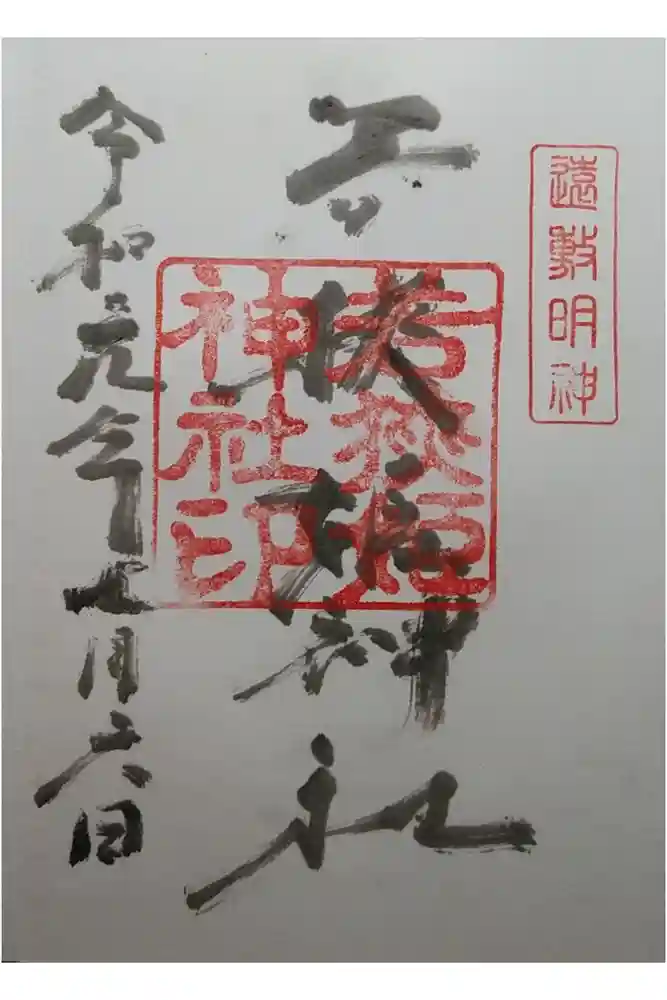 遠敷明神
若狭姫神社
若狭姫
神社印
令和元年七月六日